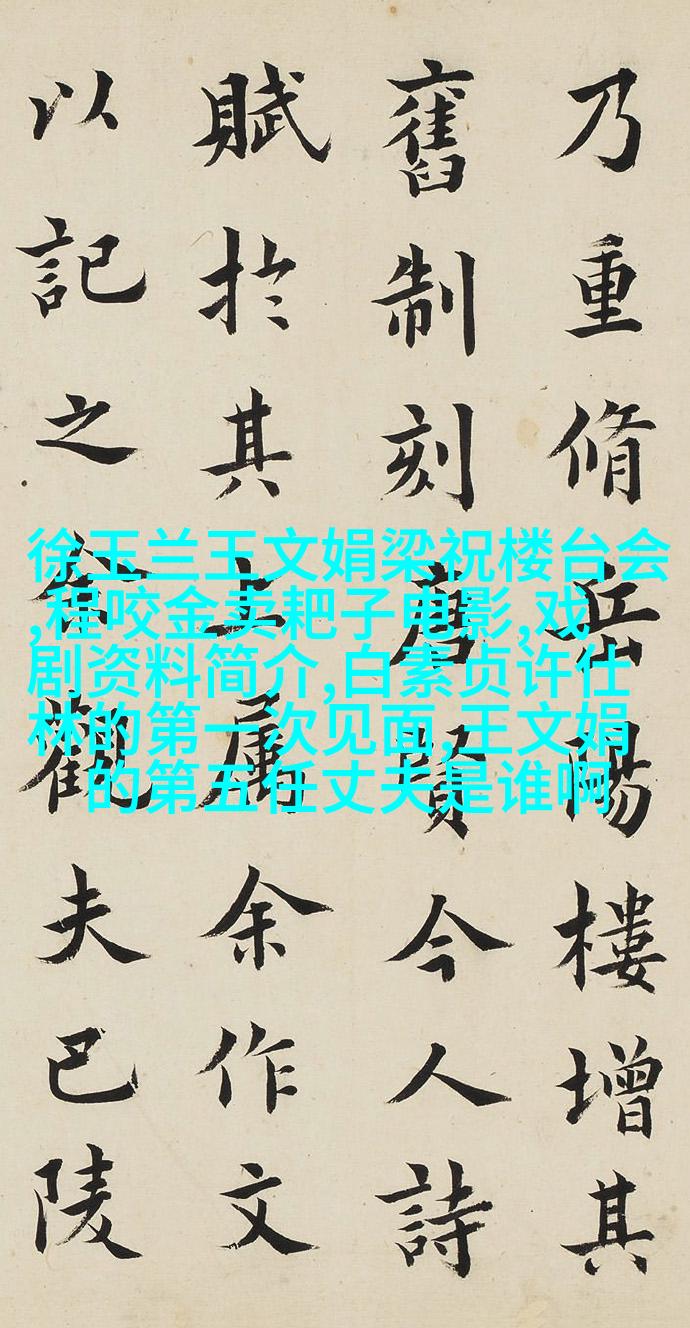 乃重脩岳陽樓增其
舊制刻唐賢今人詩
賦於其上属余作文
以記之余觀夫巴陵
徐玉兰王文娟梁祝楼台会
,程咬金卖耙子电影,戏
剧资料简介,白素贞许仕
林的第一次见面,王文娟
的第五任丈夫是谁啊